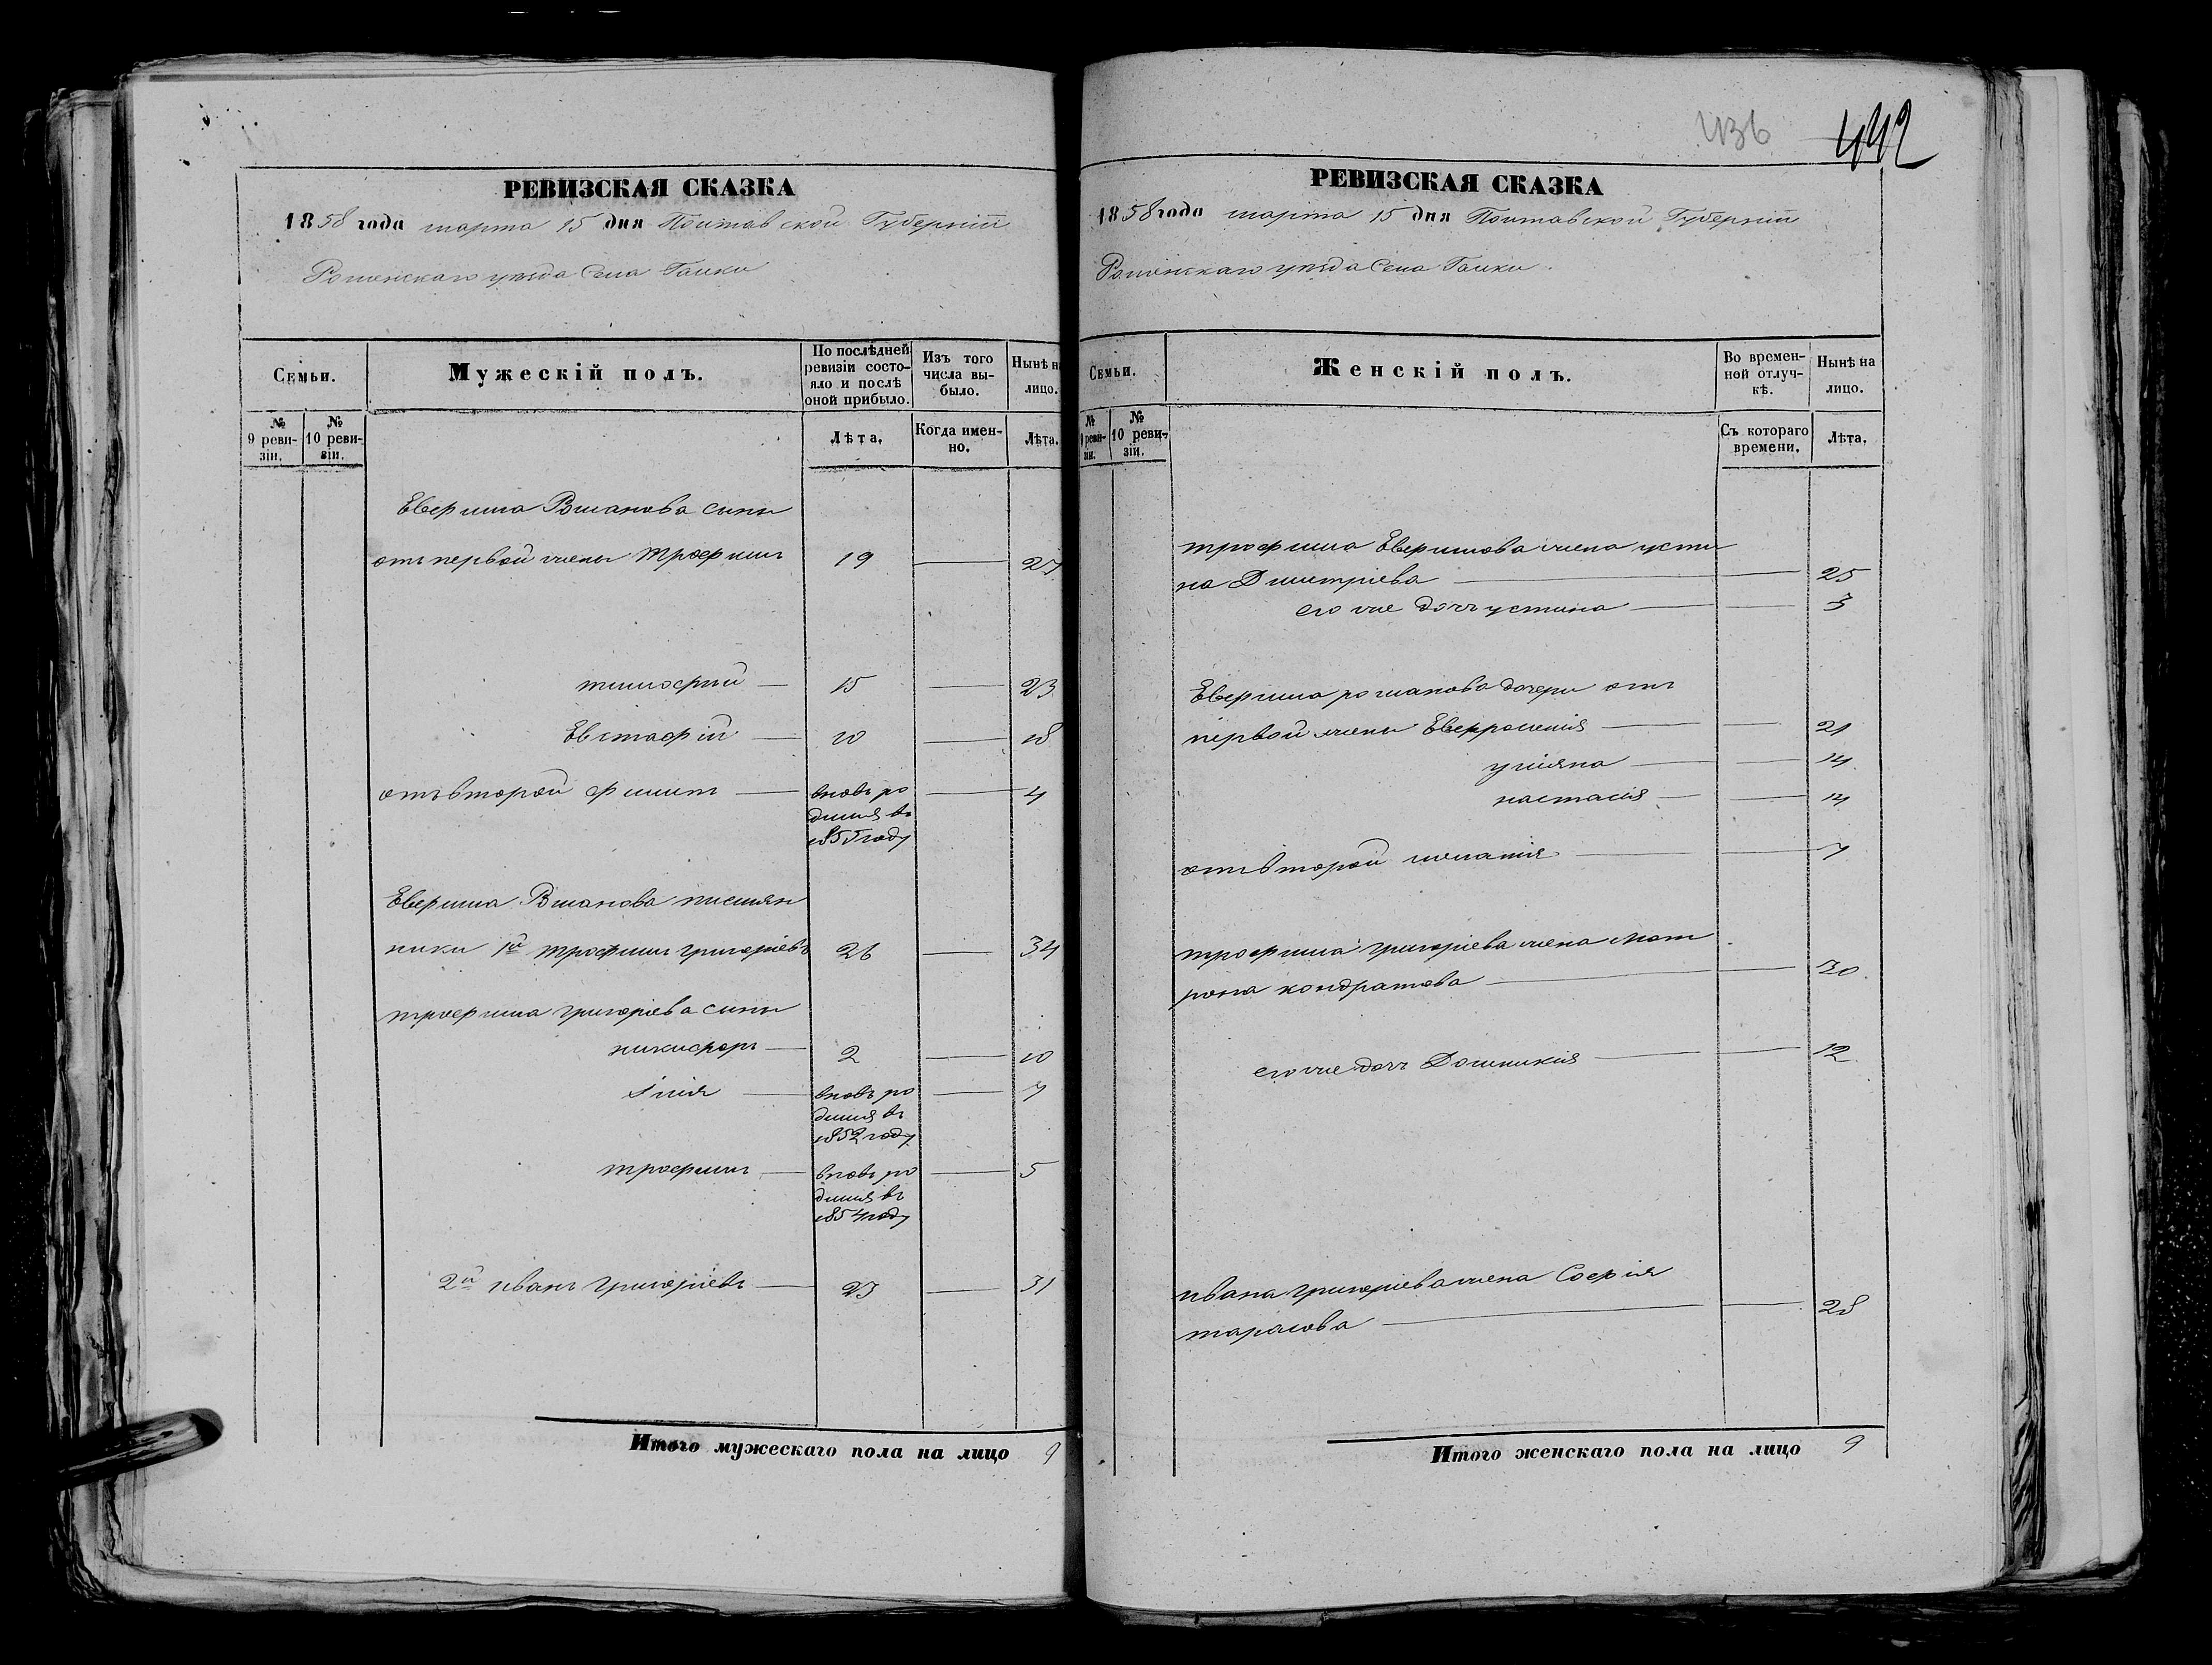 РЕВИЗСКАЯ СКАЗКА
1858 года марта 15 дня Полтавской Губернiи
Роменскаго уезда Села Галки
Семьи.
Мужескiй полъ.
По послѣдней ревизiи состо-
яло и послѣ
оной прибыло.
Изъ того
числа вы-
было.
Нынѣ на
лицо.
№
9 реви-
зiи.
№
10 реви-
зiи.
Лѣта.
Когда имен-
но.
Лѣта.
Евфима Романова сыны
отъ первой жены Трофимъ 19 27
тимофтй 15 23
Евстафiй 10 18
отъ второй филипъ вновь ро 4
дился въ
1855 году
Евфима Романова племян
ники 1й трофимъ григорiевъ 26 34
трофима григорiева сыны
никифоръ 2 10
Iлiя вновь ро 7
дился въ
1852 году
трофимъ вновь ро 5
дился въ
1854 году
2й иванъ григорiевъ 23 31
Итого мужескаго пола на лицо 9
436 442
РЕВИЗСКАЯ СКАЗКА
1858 года марта 15 дня Полтавской Губернiи
Роменскаго уезда Села Галки
Семьи.
Женскiй полъ.
Во времен-
ной отлуч-
кѣ.
Нынѣ на
лицо.
№
9 реви-
зiи.
№
10 реви-
зiи.
Съ котораго
времени.
Лѣта.
трофима Евфимова жена усти
на Дмитрiева 25
его же дочь устина 3
Евфима романова дочери отъ
первой жены Евфросинiя 21
улiяна 14
настасiя 14
отъ второй меланiя 7
трофима григорiева жена мот
рона кондратова 30
его же дочь Домникiя 12
ивана григорiева жена Софiя
тарасова 28
Итого женскаго пола на лицо 9